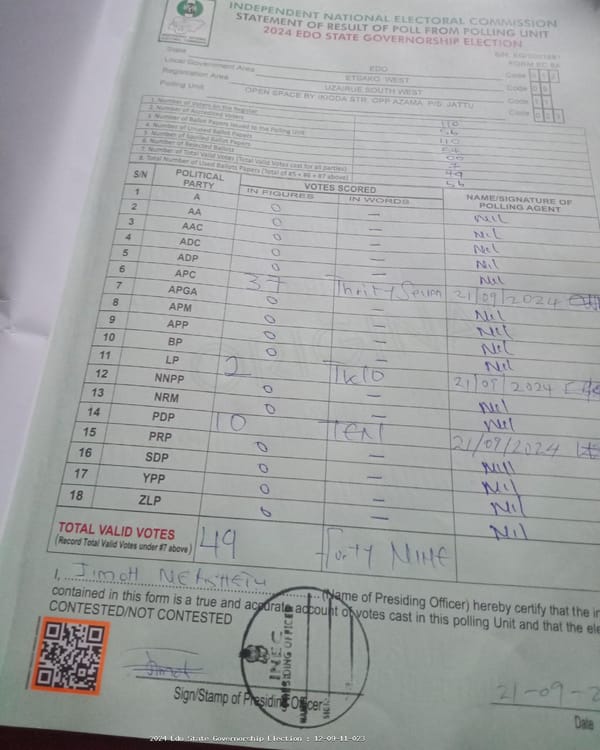 INDEPENDENT NATIONAL ELECTORAL COMMISSION
STATEMENT OF RESULT OF POLL FROM POLLING UNIT
2024 EDO STATE GOVERNORSHIP ELECTION
FORM EC 8A
State EDO Code
Local Government Area ETSAKO WEST Code
Registration Area UZAIRUE SOUTH WEST Code
Polling Unit OPEN SPACE BY IKIODA STR. OPP AZAMA P/S, JATTU Code
1. Number of Voters on the Register 110
2. Number of Accredited Voters 56
3. Number of Ballot Papers Issued to the Polling Unit 110
4. Number of Unused Ballot Papers 54
5. Number of Spoiled Ballot Papers 00
6. Number of Rejected Ballots 7
7. Number of Total Valid Votes (Total Valid Votes cast for all parties) 49
8. Total Number of Used Ballots Papers (Total of #5 + #6 + #7 above) 56
S/N POLITICAL PARTY VOTES SCORED NAME/SIGNATURE OF POLLING AGENT
IN FIGURES IN WORDS
1 A 0 — Nil
2 AA 0 — Nil
3 AAC 0 — Nil
4 ADC 0 — Nil
5 ADP 0 — Nil
6 APC 37 Thirty Seven 21/09/2024
7 APGA 0 — Nil
8 APM 0 — Nil
9 APP 0 — Nil
10 BP 0 — Nil
11 LP 2 TWO 21/09/2024
12 NNPP 0 — Nil
13 NRM 0 — Nil
14 PDP 10 TEN 21/09/2024
15 PRP 0 — Nil
16 SDP 0 — Nil
17 YPP 0 — Nil
18 ZLP 0 — Nil
TOTAL VALID VOTES 49 forty NINE
(Record Total Valid Votes under #7 above)
I, JIMOH (Name of Presiding Officer) hereby certify that the
contained in this form is a true and accurate account of votes cast in this polling Unit and that the
CONTESTED/NOT CONTESTED
INEC
PRESIDING OFFICER
Sign/Stamp of Presiding Officer
21-09-2
Date
2024 Edo State Governorship Election : 12-09-11-023